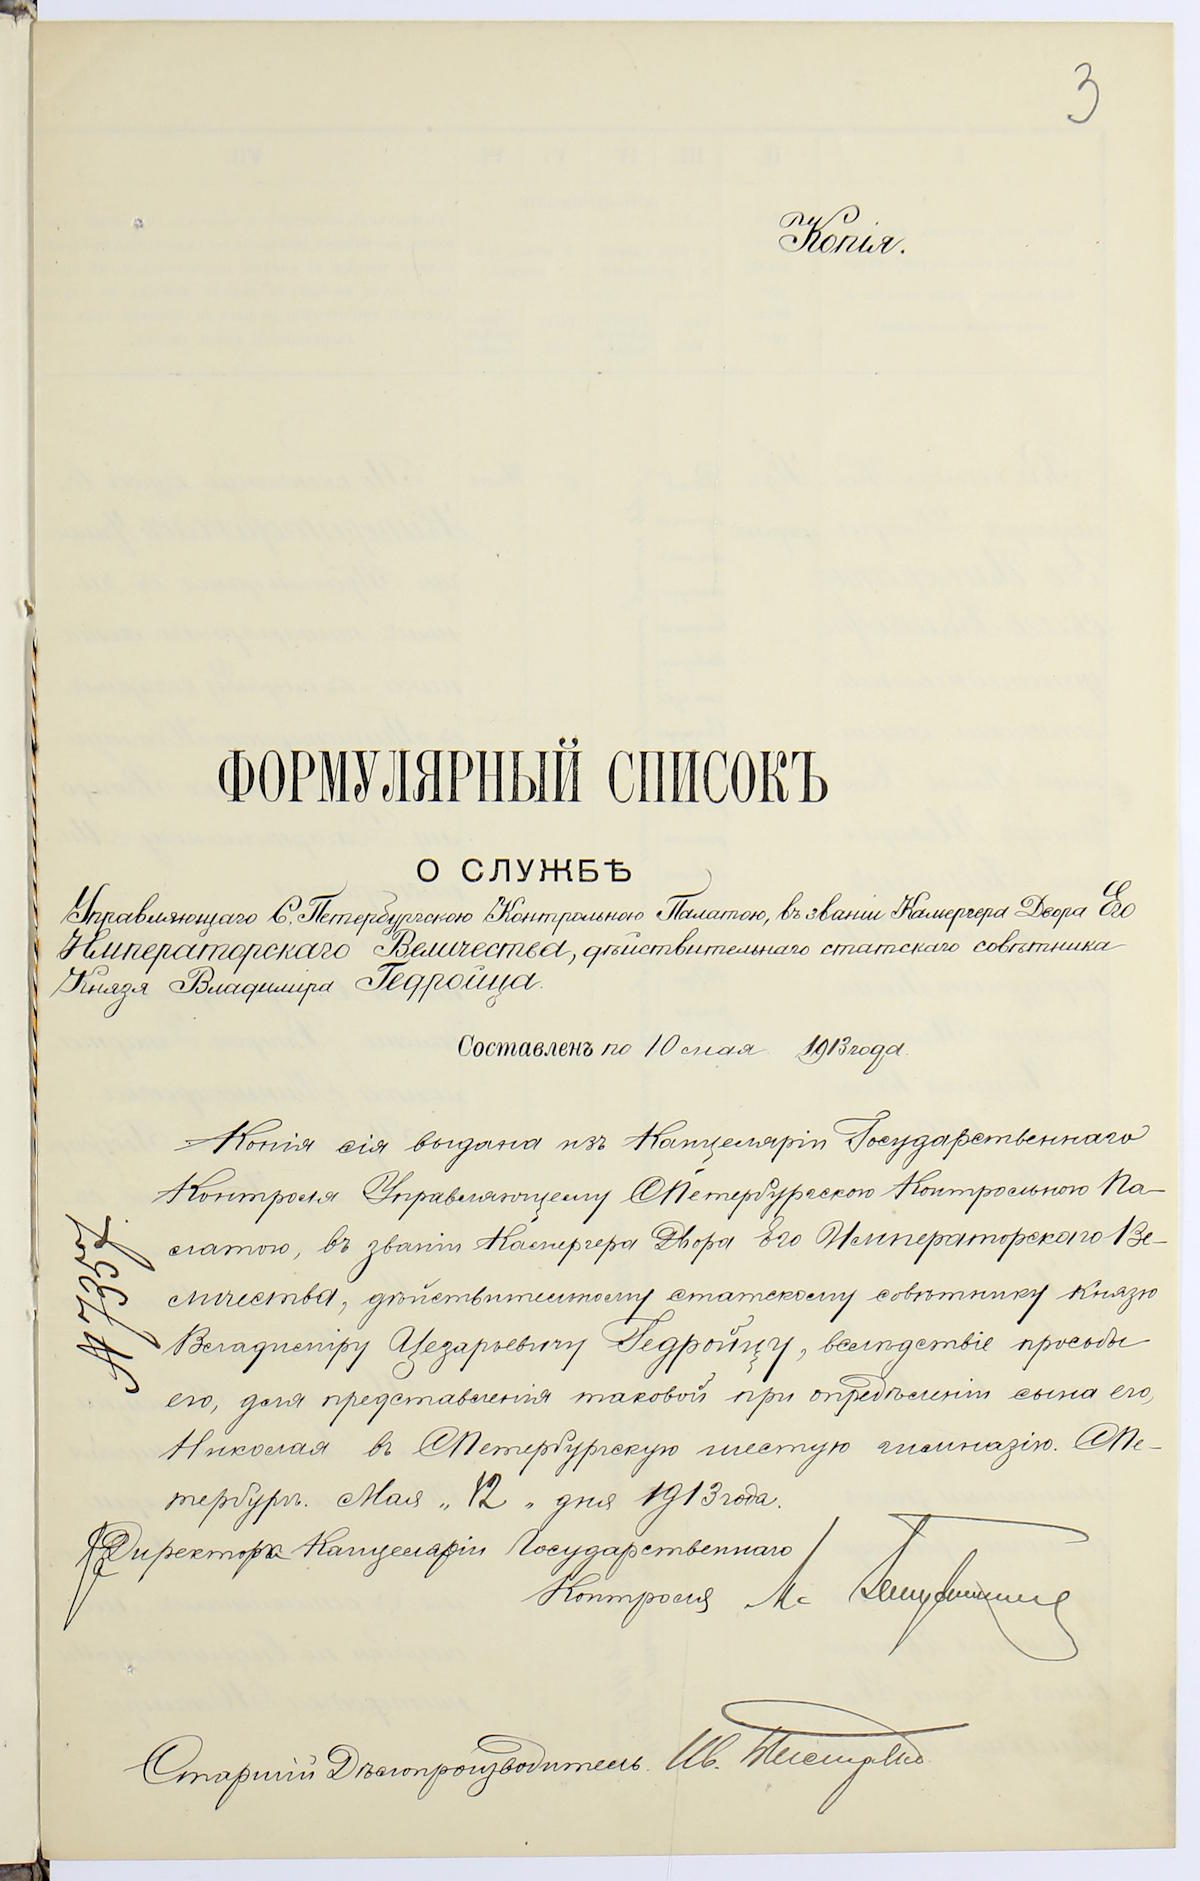 3
Копія.
ФОРМУЛЯРНЫЙ СПИСОКЪ
О СЛУЖБѢ
Управляющаго С. Петербургскою Контрольною Палатою, въ званіи Камергера Двора Его
Императорскаго Величества, дѣйствительнаго статскаго совѣтника
Князя Владиміра Гедройца.
Составленъ по 10 мая 1913 года.
Копія сія выдана изъ Канцеляріи Государственнаго
Контроля Управляющему СПетербургскою Контрольною Па-
латою, въ званіи Камергера Двора Его Императорскаго Ве-
личества, дѣйствительному статскому совѣтнику князю
Владиміру Цезарьевичу Гедройцу, вслѣдствіе просьбы
его, для представленія таковой при опредѣленіи сына его,
Николая въ СПетербургскую шестую гимназію. СПе-
тербургъ. Мая „12„ дня 1913 года.
Директора Канцеляріи Государственнаго
Контроля
Старшій Дѣлопроизводитель Ив.